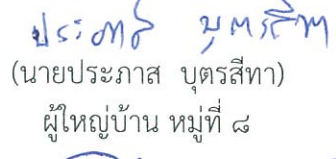 ประภาส บุตรสีทา
(นายประภาส บุตรสีทา)
ผู้ใหญ่บ้าน หมู่ที่ ๘